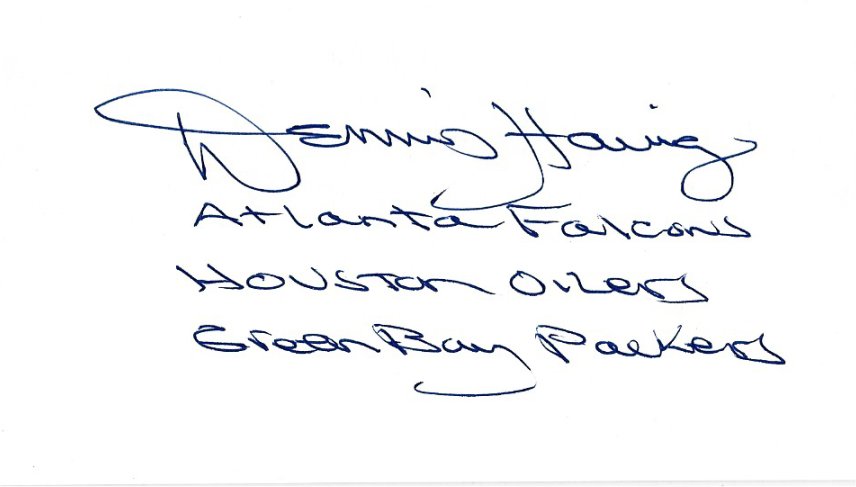 Dennis Havig
Atlanta Falcons
Houston Oilers
Green Bay Packers